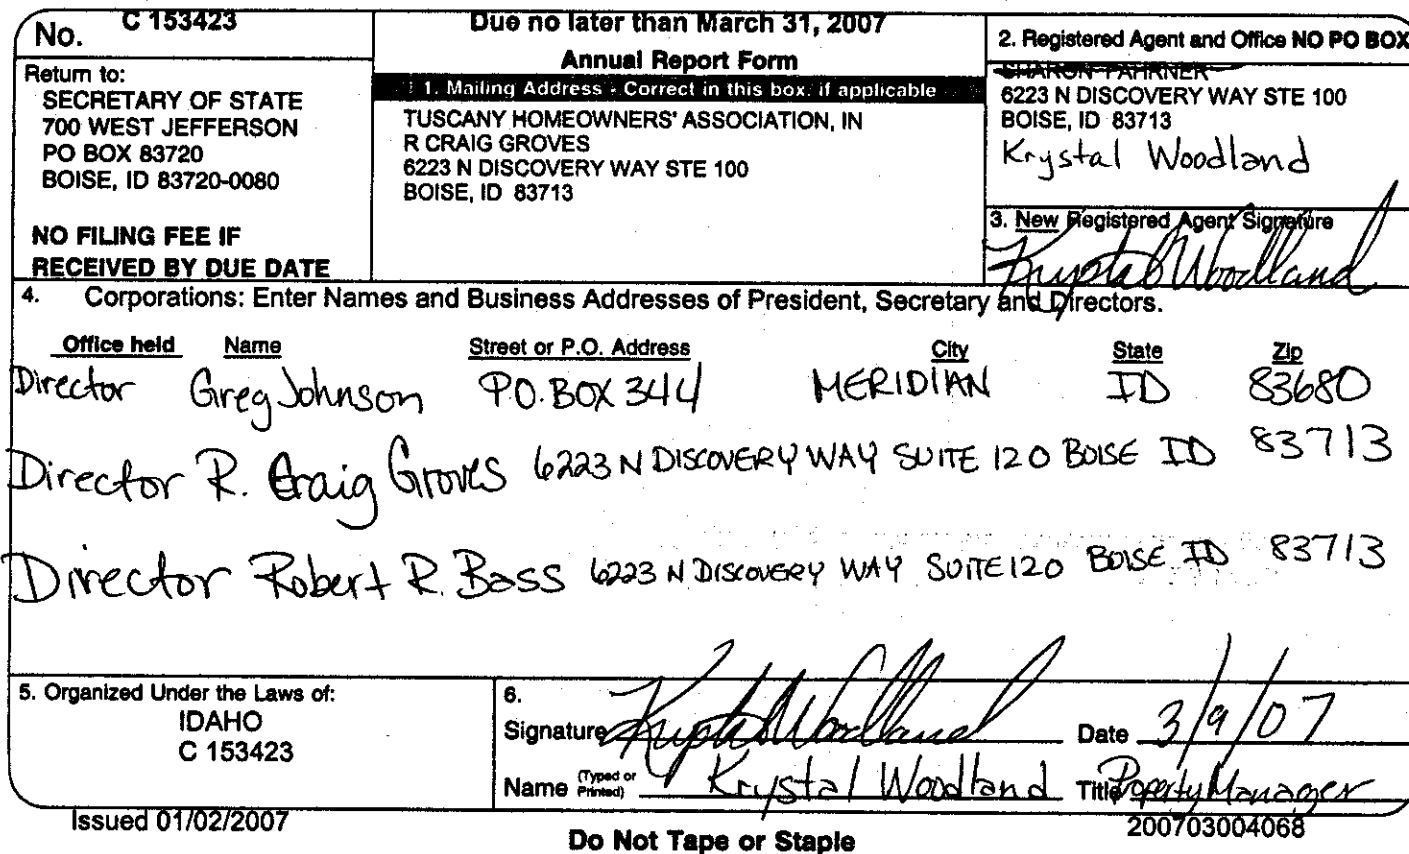 No. C 153423
Return to:
SECRETARY OF STATE
700 WEST JEFFERSON
PO BOX 83720
BOISE, ID 83720-0080
NO FILING FEE IF
RECEIVED BY DUE DATE
Due no later than March 31, 2007
Annual Report Form
1. Mailing Address - Correct in this box. if applicable
TUSCANY HOMEOWNERS' ASSOCIATION, IN
R CRAIG GROVES
6223 N DISCOVERY WAY STE 100
BOISE, ID 83713
2. Registered Agent and Office NO PO BOX
SHARON FAHRNER
6223 N DISCOVERY WAY STE 100
BOISE, ID 83713
Krystal Woodland
3. New Registered Agent Signature
Krystal Woodland
4. Corporations: Enter Names and Business Addresses of President, Secretary and Directors.
Office held Name Street or P.O. Address City State Zip
Director Greg Johnson P.O. BOX 344 MERIDIAN ID 83680
Director R. Craig Groves 6223 N DISCOVERY WAY SUITE 120 BOISE ID 83713
Director Robert R. Bass 6223 N DISCOVERY WAY SUITE 120 BOISE ID 83713
5. Organized Under the Laws of:
IDAHO
C 153423
6.
Signature Krystal Woodland Date 3/9/07
Name (Typed or Printed) Krystal Woodland Title Poperty Manager
Issued 01/02/2007
Do Not Tape or Staple
200703004068